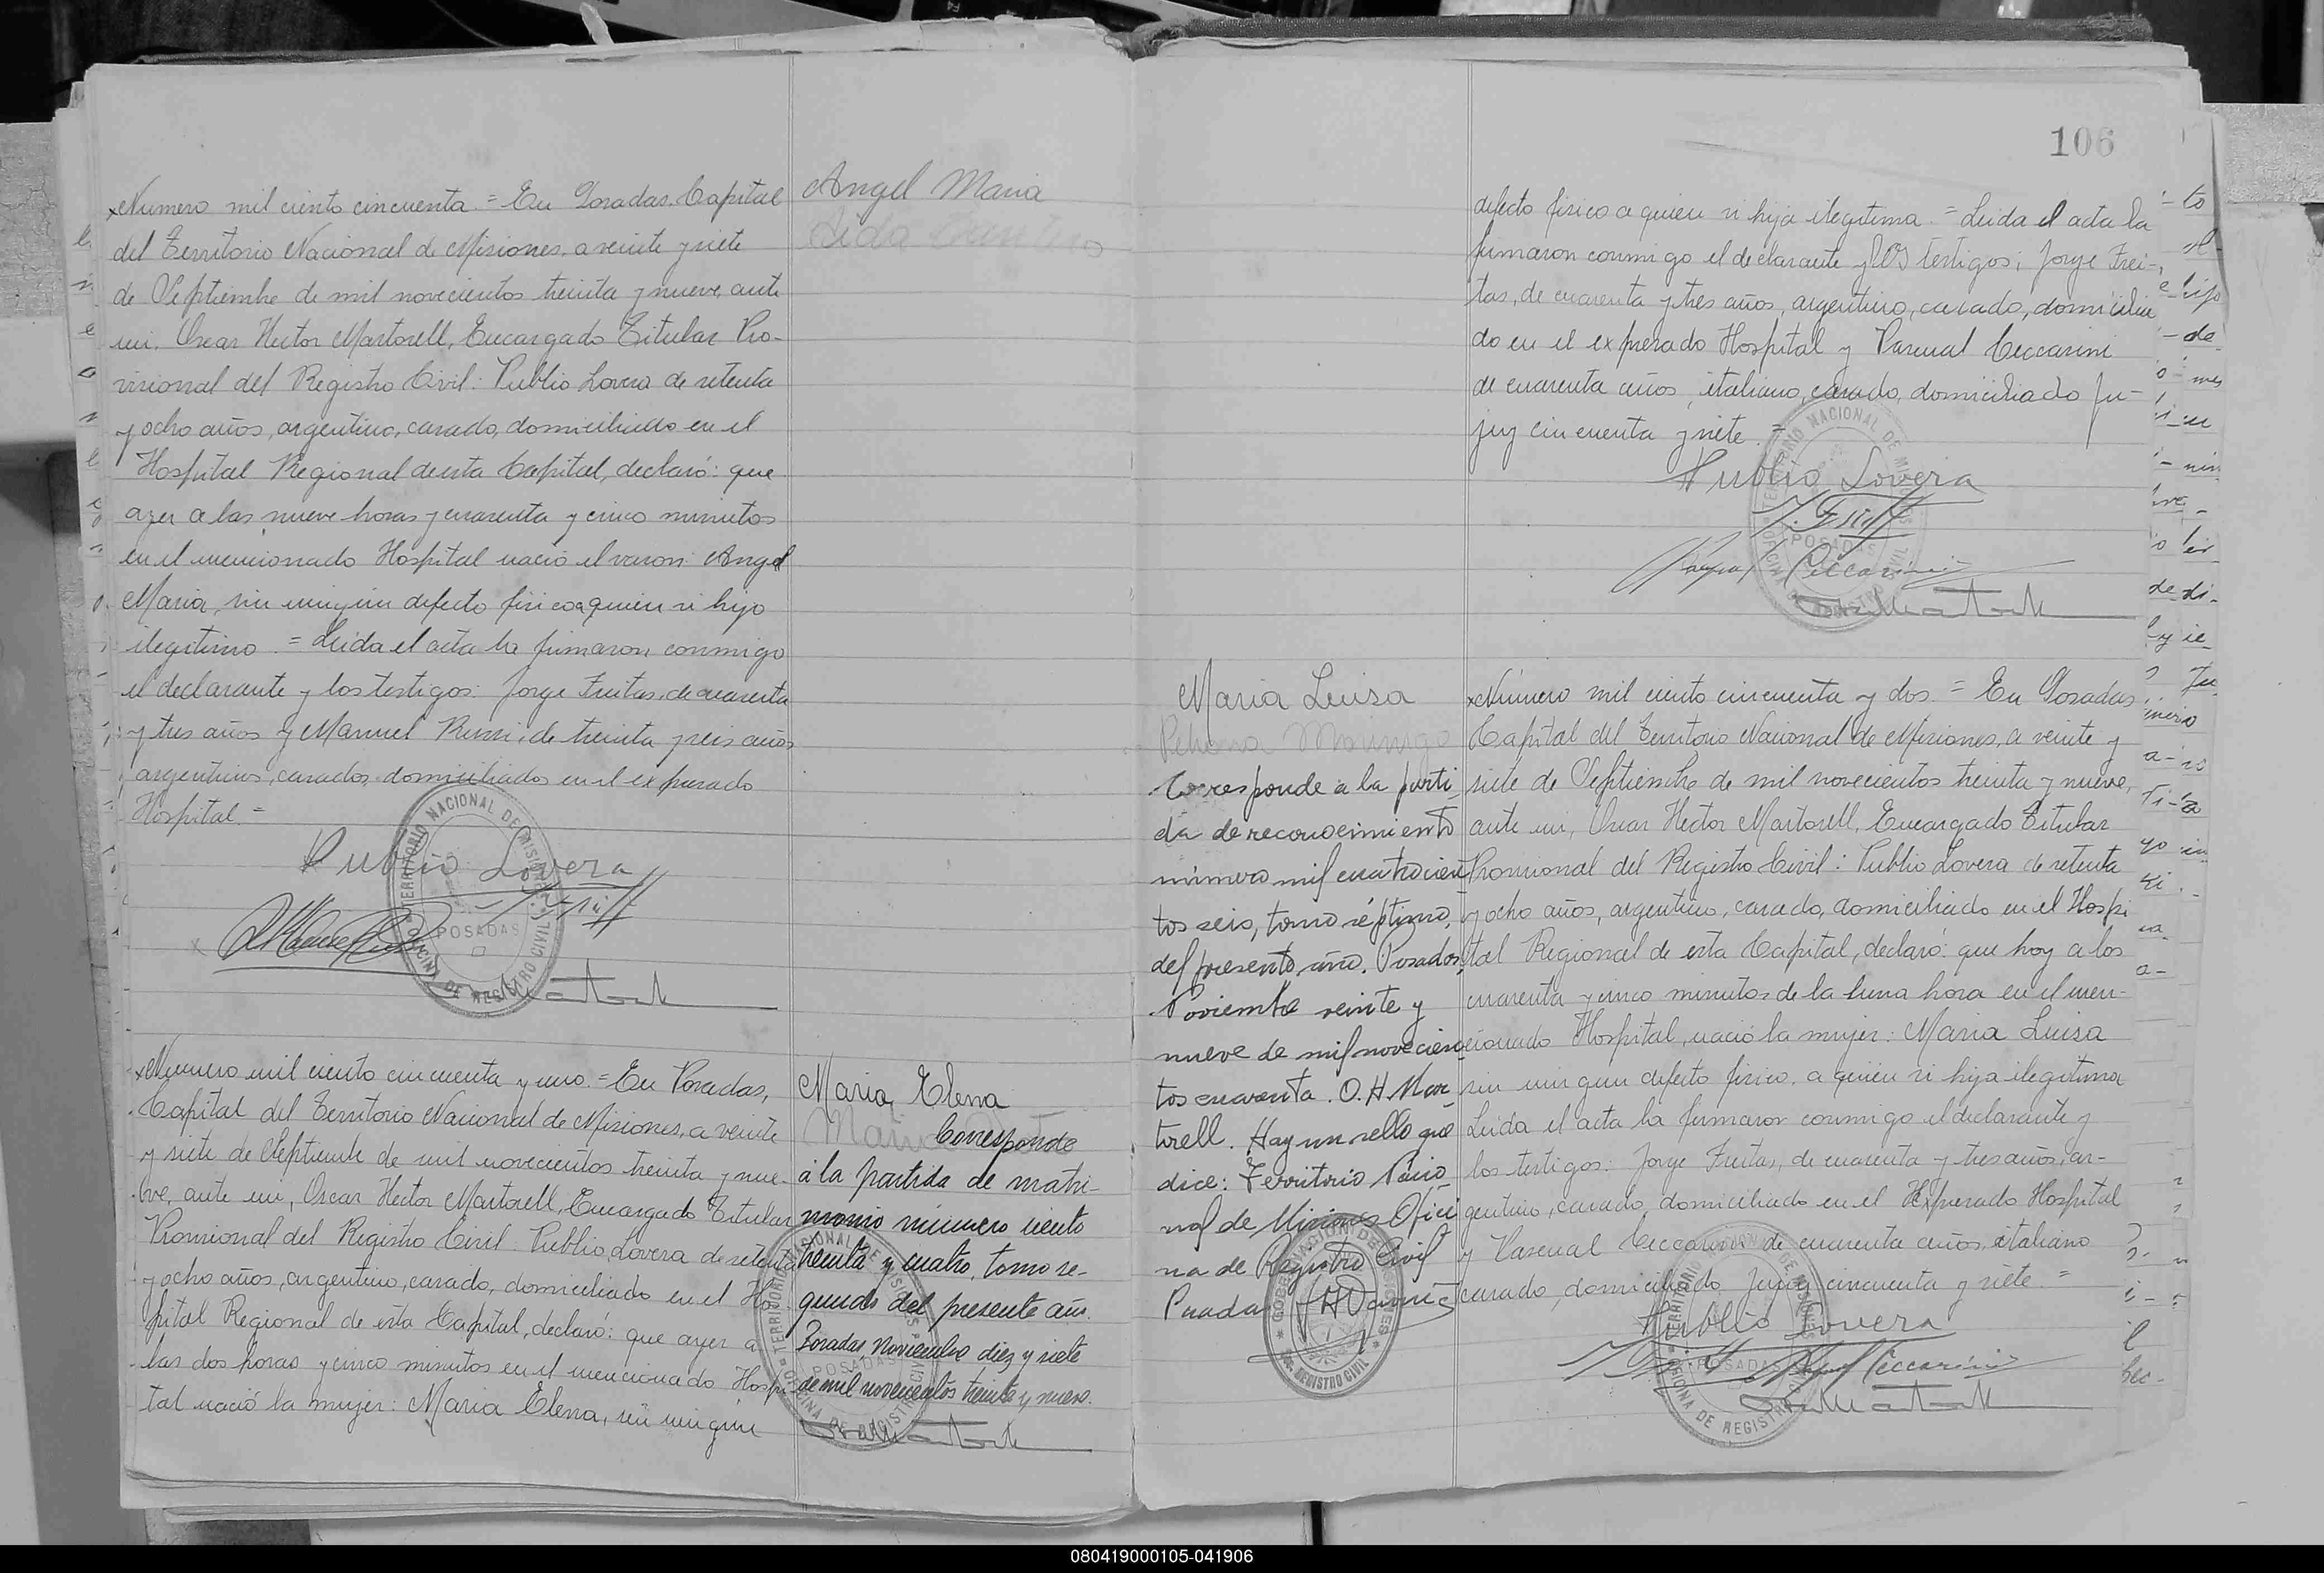 Numero mil ciento cincuenta = En Posadas, Capital
del Territorio Nacional de Misiones, a veinte y siete
de Septiembre de mil novecientos treinta y nueve, ante
mi, Oscar Hector Martorell, Encargado Titular Pro-
visional del Registro Civil: Publio Lovera de setenta
y ocho años, argentino, casado, domiciliado en el
Hospital Regional de esta Capital, declaró: que
ayer a las nueve horas y cuarenta y cinco minutos
en el mencionado Hospital nació el varon: Angel
Maria, sin ningun defecto fisico a quien si hijo
ilegitimo = Leida el acta la firmaron conmigo
el declarante y los testigos: Jorge Freitas, de cuarenta
y tres años y Manuel Russi, de treinta y seis años
argentinos, casados, domiciliados en el expresado
Hospital =
Publio Lovera
J. Freitas
TERRITORIO NACIONAL DE MISIONES
POSADAS
OFICINA DE REGISTRO CIVIL
Angel Maria
Numero mil ciento cincuenta y uno = En Posadas,
Capital del Territorio Nacional de Misiones, a veinte
y siete de Septiembre de mil novecientos treinta y nue-
ve, ante mi, Oscar Hector Martorell, Encargado Titular
Provisional del Registro Civil: Publio Lovera de setenta
y ocho años, argentino, casado, domiciliado en el Hos-
pital Regional de esta Capital, declaró: que ayer a
las dos horas y cinco minutos en el mencionado Hospi-
tal nació la mujer: Maria Elena, sin ningún
Maria Elena
Corresponde
á la partida de matri-
monio número ciento
treinta y cuatro, tomo se-
gundo del presente año.
Posadas, Noviembre diez y siete
de mil novecientos treinta y nueve.
TERRITORIO NACIONAL DE MISIONES
POSADAS
OFICINA DE REGISTRO CIVIL
106
defecto fisico a quien si hija ilegitima = Leida el acta la
firmaron conmigo el declarante y los testigos: Jorge Frei-
tas, de cuarenta y tres años, argentino, casado, domicilia
do en el expresado Hospital y Pascual Ceccarini
de cuarenta años, italiano, casado, domiciliado Ju-
juy cincuenta y siete =
Publio Lovera
J. Freitas
Pascual Ceccarini
TERRITORIO NACIONAL DE MISIONES
POSADAS
OFICINA DE REGISTRO CIVIL
Maria Luisa
Corresponde a la parti
da de reconocimiento
número mil cuatrocien
tos seis, tomo séptimo,
del presente año. Posadas,
Noviembre veinte y
nueve de mil novecien
tos cuarenta. O. H. Mar
torell. Hay un sello que
dice: Territorio Nacio
nal de Misiones Ofici
na de Registro Civil
Posadas
GOBERNACION DE MISIONES
REGISTRO CIVIL
Número mil ciento cincuenta y dos = En Posadas
Capital del Territorio Nacional de Misiones, a veinte y
siete de Septiembre de mil novecientos treinta y nueve,
ante mi, Oscar Hector Martorell, Encargado Titular
Provisional del Registro Civil: Publio Lovera de setenta
y ocho años, argentino, casado, domiciliado en el Hospi
tal Regional de esta Capital, declaró: que hoy a los
cuarenta y cinco minutos de la una hora en el men-
cionado Hospital, nació la mujer: Maria Luisa
sin ningun defecto fisico, a quien si hija ilegitima
Leida el acta la firmaron conmigo el declarante y
los testigos: Jorge Freitas, de cuarenta y tres años, ar-
gentino, casado, domiciliado en el Expresado Hospital
y Pascual Ceccarini de cuarenta años, italiano
casado, domiciliado Jujuy cincuenta y siete =
Publio Lovera
J. Freitas Pascual Ceccarini
TERRITORIO NACIONAL DE MISIONES
POSADAS
OFICINA DE REGISTRO CIVIL
080419000105-041906